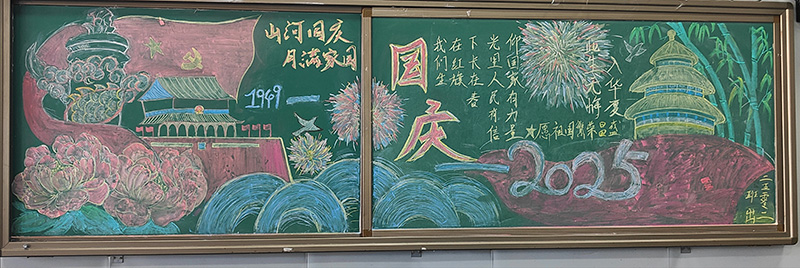 山河同庆
月满家国
1949
国庆
我们生
在红旗
下长在春
光里人民有信
仰国家有力量
此生无悔
入华夏
★愿祖国繁荣昌盛
2025
二五零二
班